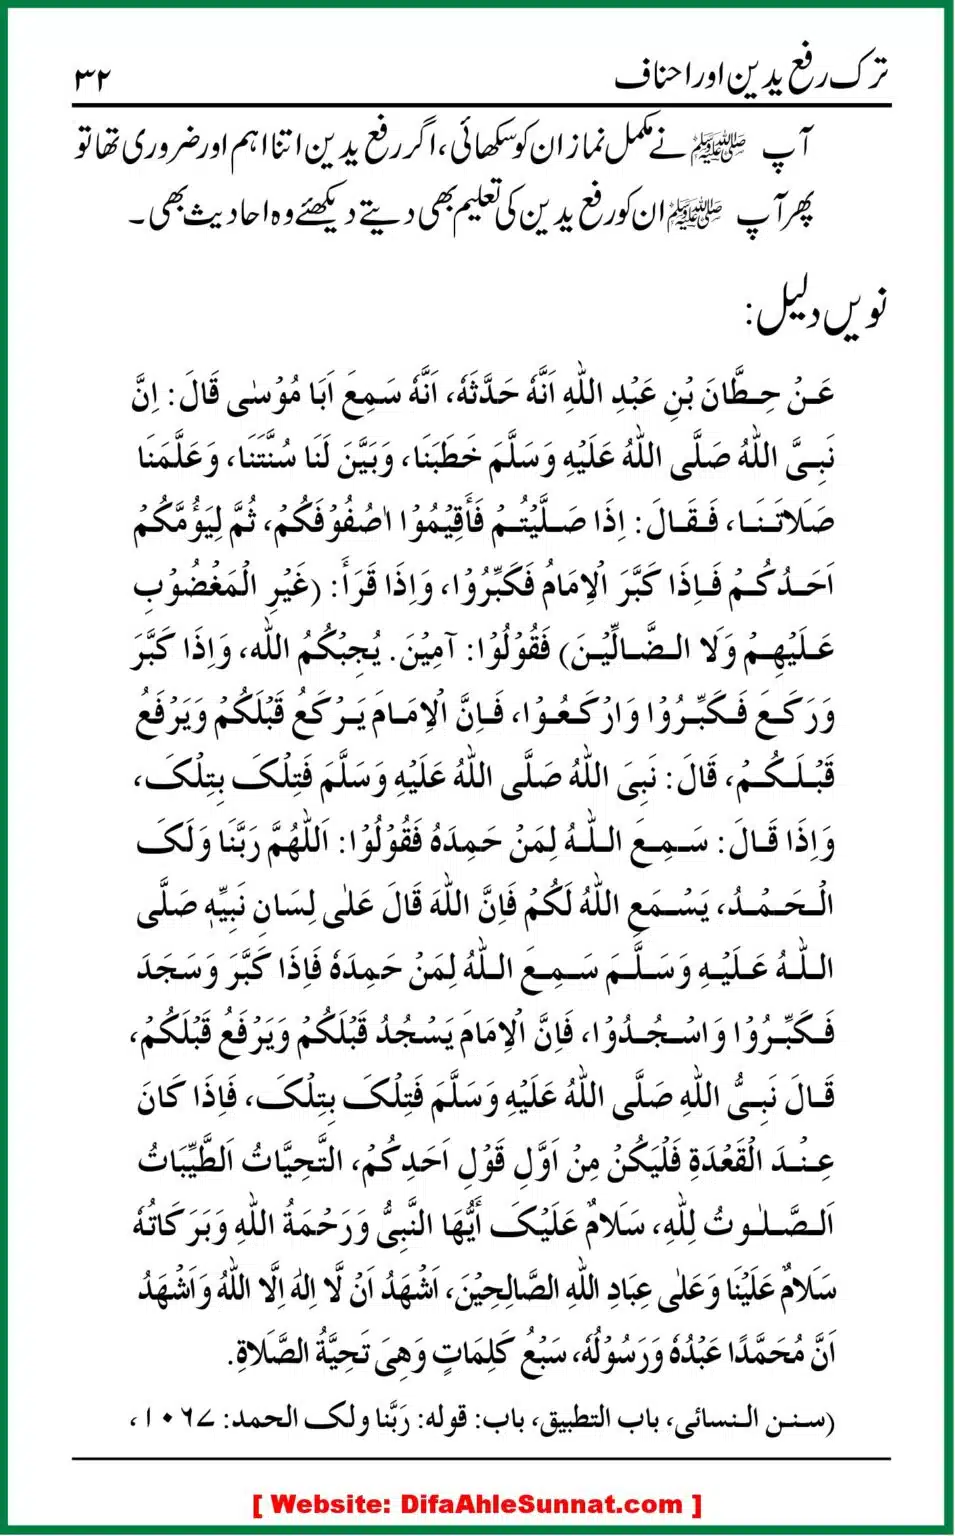 ترک رفع یدین اور احناف ۳۲
آپ ﷺ نے مکمل نماز ان کو سکھائی، اگر رفع یدین اتنا اہم اور ضروری تھا تو
پھر آپ ﷺ ان کو رفع یدین کی تعلیم بھی دیتے دیکھئے وہ احادیث بھی۔
نویں دلیل:
عَنْ حِطَّانَ بْنِ عَبْدِ اللهِ اَنَّهٗ حَدَّثَهٗ، اَنَّهٗ سَمِعَ اَبَا مُوْسٰى قَالَ: اِنَّ
نَبِیَّ اللهُ صَلَّى اللهُ عَلَيْهِ وَسَلَّمَ خَطَبَنَا، وَبَيَّنَ لَنَا سُنَّتَنَا، وَعَلَّمَنَا
صَلَاتَنَا، فَقَالَ: اِذَا صَلَّيْتُمْ فَأَقِيْمُوْا اصُفُوْفَكُمْ، ثُمَّ لِيَؤُمَّكُمْ
اَحَدُكُمْ فَاِذَا كَبَّرَ الْاِمَامُ فَكَبِّرُوْا، وَاِذَا قَرَأَ: (غَيْرِ الْمَغْضُوْبِ
عَلَيْهِمْ وَلَا الضَّالِّيْنَ) فَقُوْلُوْا: آمِيْنَ. يُجِبْكُمُ الله، وَاِذَا كَبَّرَ
وَرَكَعَ فَكَبِّرُوْا وَارْكَعُوْا، فَاِنَّ الْاِمَامَ يَرْكَعُ قَبْلَكُمْ وَيَرْفَعُ
قَبْلَكُمْ، قَالَ: نَبِیَ اللهُ صَلَّى اللهُ عَلَيْهِ وَسَلَّمَ فَتِلْکَ بِتِلْکَ،
وَاِذَا قَالَ: سَمِعَ اللهُ لِمَنْ حَمِدَهُ فَقُوْلُوْا: اَللّٰهُمَّ رَبَّنَا وَلَکَ
الْحَمْدُ، يَسْمَعِ اللهُ لَكُمْ فَاِنَّ اللهَ قَالَ عَلٰى لِسَانِ نَبِيِّهٖ صَلَّى
اللهُ عَلَيْهِ وَسَلَّمَ سَمِعَ اللهُ لِمَنْ حَمِدَهٗ فَاِذَا كَبَّرَ وَسَجَدَ
فَكَبِّرُوْا وَاسْجُدُوْا، فَاِنَّ الْاِمَامَ يَسْجُدُ قَبْلَكُمْ وَيَرْفَعُ قَبْلَكُمْ،
قَالَ نَبِیُّ اللهِ صَلَّى اللهُ عَلَيْهِ وَسَلَّمَ فَتِلْکَ بِتِلْکَ، فَاِذَا كَانَ
عِنْدَ الْقَعْدَةِ فَلْيَكُنْ مِنْ اَوَّلِ قَوْلِ اَحَدِكُمْ، التَّحِيَّاتُ اَلطَّيِّبَاتُ
اَلصَّلٰوتُ لِلّٰهِ، سَلَامٌ عَلَيْکَ أَيُّهَا النَّبِیُّ وَرَحْمَةُ اللهِ وَبَرَكَاتُهٗ
سَلَامٌ عَلَيْنَا وَعَلٰى عِبَادِ اللهِ الصَّالِحِيْنَ، اَشْهَدُ اَنْ لَّا اِلٰهَ اِلَّا اللهُ وَاَشْهَدُ
اَنَّ مُحَمَّدًا عَبْدُهٗ وَرَسُوْلُهٗ، سَبْعُ كَلِمَاتٍ وَهِیَ تَحِيَّةُ الصَّلَاةِ.
(سنن النسائی، باب التطبیق، باب: قوله: رَبَّنا ولک الحمد: ۱۰۶۷،
[ Website: DifaAhleSunnat.com ]